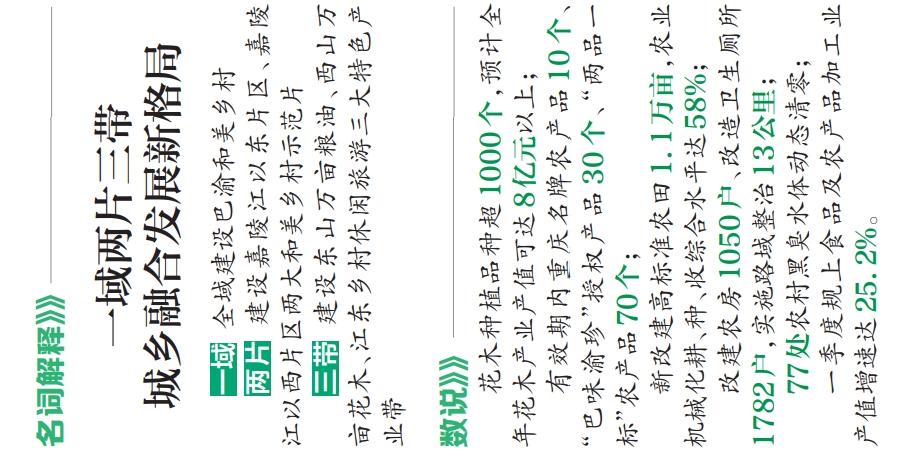 名词解释》》
一域两片三带
城乡融合发展新格局
一域 全域建设巴渝和美乡村
两片 建设嘉陵江以东片区、嘉陵
江以西片区两大和美乡村示范片
三带 建设东山万亩粮油、西山万
亩花木、江东乡村休闲旅游三大特色产
业带
数说》》
花木种植品种超1000个,预计全
年花木产业产值可达8亿元以上;
有效期内重庆名牌农产品10个、
“巴味渝珍”授权产品30个、“两品一
标”农产品70个;
新改建高标准农田1.1万亩,农业
机械化耕、种、收综合水平达58%;
改建农房1050户、改造卫生厕所
1782户,实施路域整治13公里;
77处农村黑臭水体动态清零;
一季度规上食品及农产品加工业
产值增速达25.2%。